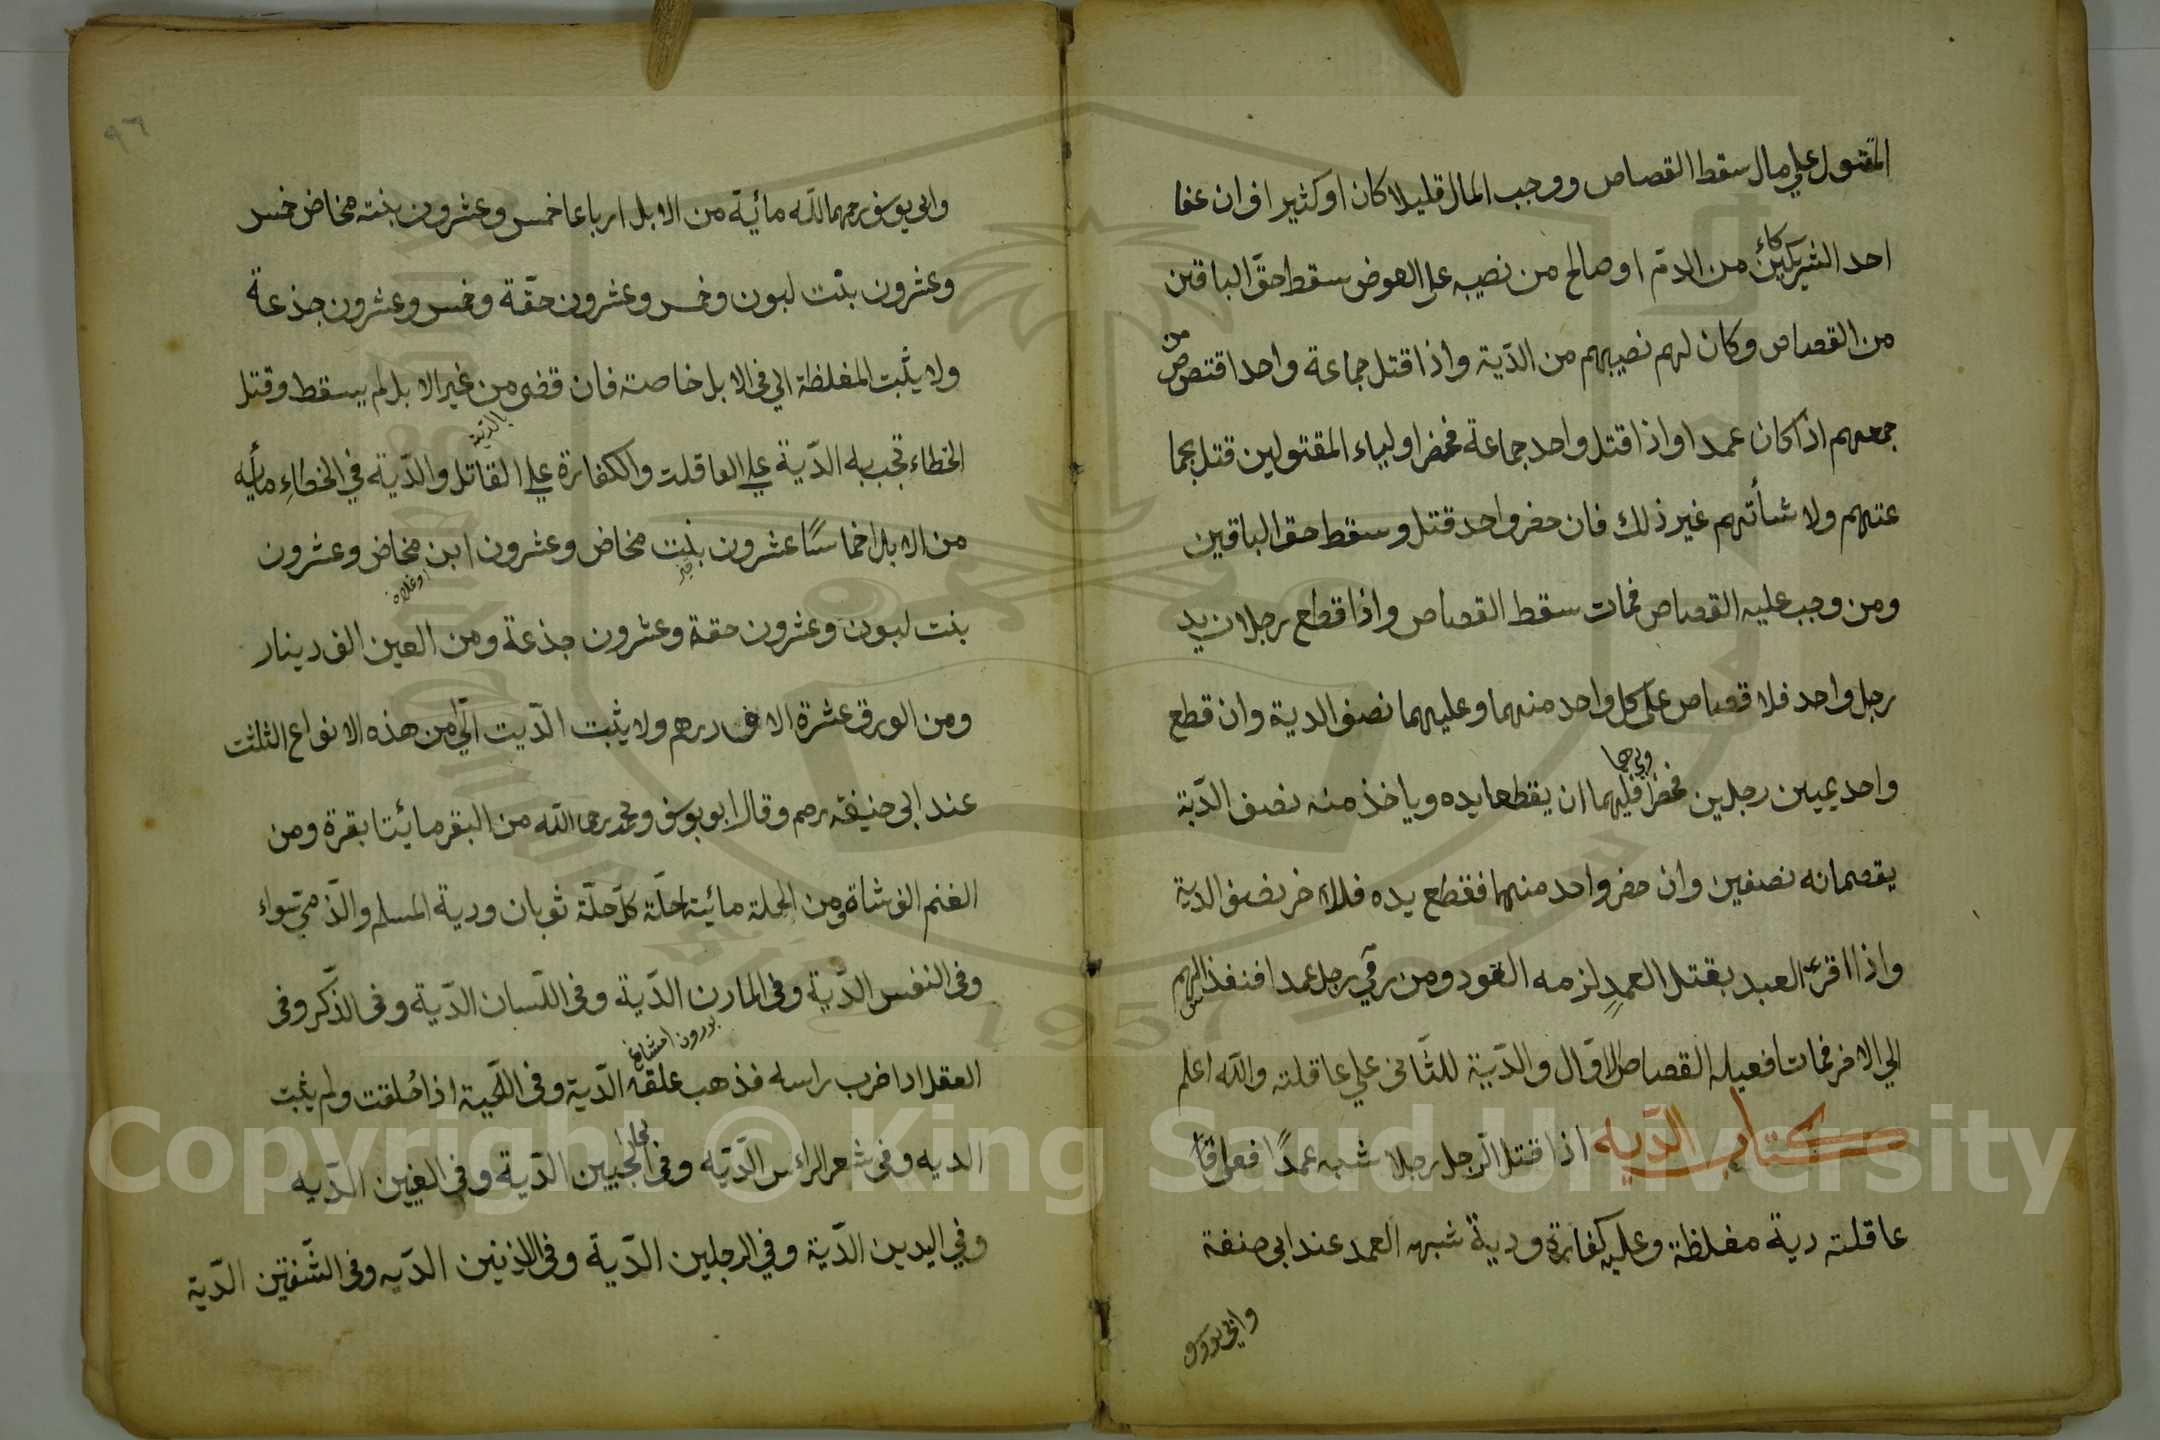 المقتول علي مال سقط القصاص ووجب المال قليلا كان او كثيرا فان عفا
احد الشريكين من الدم او صالح من نصيبه على العوض سقط حقّ الباقين
من القصاص وكان لهم نصيبهم من الدّية واذا قتل جماعة واحدا اقتص من
جمعهم اذا كان عمدا واذا قتل واحد جماعة فحضر اولياء المقتولين قتل بجما
عتهم ولا شأتهم غير ذلك فان حضر واحد قتل وسقط حق الباقين
ومن وجب عليه القصاص فمات سقط القصاص واذا قطع رجلان يد
رجل واحد فلا قصاص على كل واحد منهما وعليهما نصف الدية وان قطع
واحد يميين رجلين فحضرا فلهما ان يقطعا يده وياخذ منه نصف الدّية
يقصمانه نصفين وان حضر واحد منهما فقطع يده فللاخر نصف الدية
واذا اقرّ العبد بقتل العمد لزمه القود ومن رمي رجل عمدا فنفذ السهم
الي الاخر فماتا فعيله القصاص الاوّل والدّية للثّانى علي عاقلته والله اعلم
كتاب الدّيه اذا قتل الرّجل رجلا شبه عمدًا فعلى
عاقلته دية مغلظة وعليه كفارة ودية شبه العمد عند ابى حنفة
وابي يوسف
٩٦
وابى يوسف رحمهما الله مائية من الابل ارباعا خمس وعشرون بنت مخاض خمس
وعشرون بنت لبون وخمس وعشرون حقّة وخمس وعشرون جذعة
ولا يثبت المغلظة الي فى الابل خاصت فان قضى من غير الابل لم يسقط وقتل
بالدّية
الخطاء تجب به الدّية علي العاقلت والكفارة علي القاتل والدّية في الخطاءِ مأيه
من الابل اخماسًا عشرون بنت مخاض وعشرون ابن مخاض وعشرون
بنت لبون وعشرون حقة وعشرون جذعة ومن العين الف دينار
ومن الورق عشرة الاف درهم ولا يثبت الدّيت الّا من هذه الانواع الثلثت
عند ابى حنيفة رحم وقال ابو يوسف ومحمد رحما الله من البقر مائيتا بقرة ومن
الغنم الف شاة ومن الحلة مائية حلّة كلّ حلّة ثوبان ودية المسلم والذّميّ سواء
وفى النفس الدّية وفى المارن الدّية وفى اللّسان الدّية وفى الذّكر وفى
العقل اذا ضرب راسه فذهب علقه الدّية وفى اللّحية اذا حُلقت ولم ينبت
الديه وفى شعر الرائس الدّيه وفى الحجبين الدّية وفى العينين الدّيه
وفي اليدين الدّية وفي الرجلين الدّية وفى الاذنين الدّيه وفى الشّفتين الدّية
Copyright © King Saud University
1957